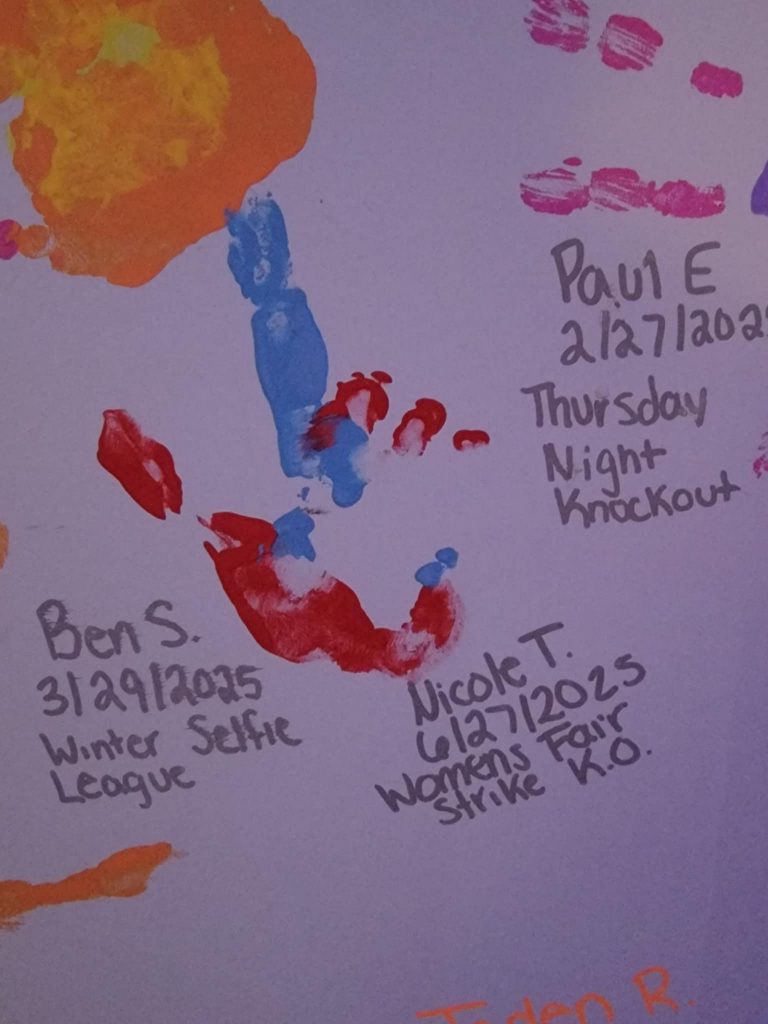 Paul E
2/27/202
Thursday
Night
Knockout
Ben S.
3/29/2025
Winter Selfie
League
Nicole T.
6/27/2025
Womens Fair
Strike K.O.
R.